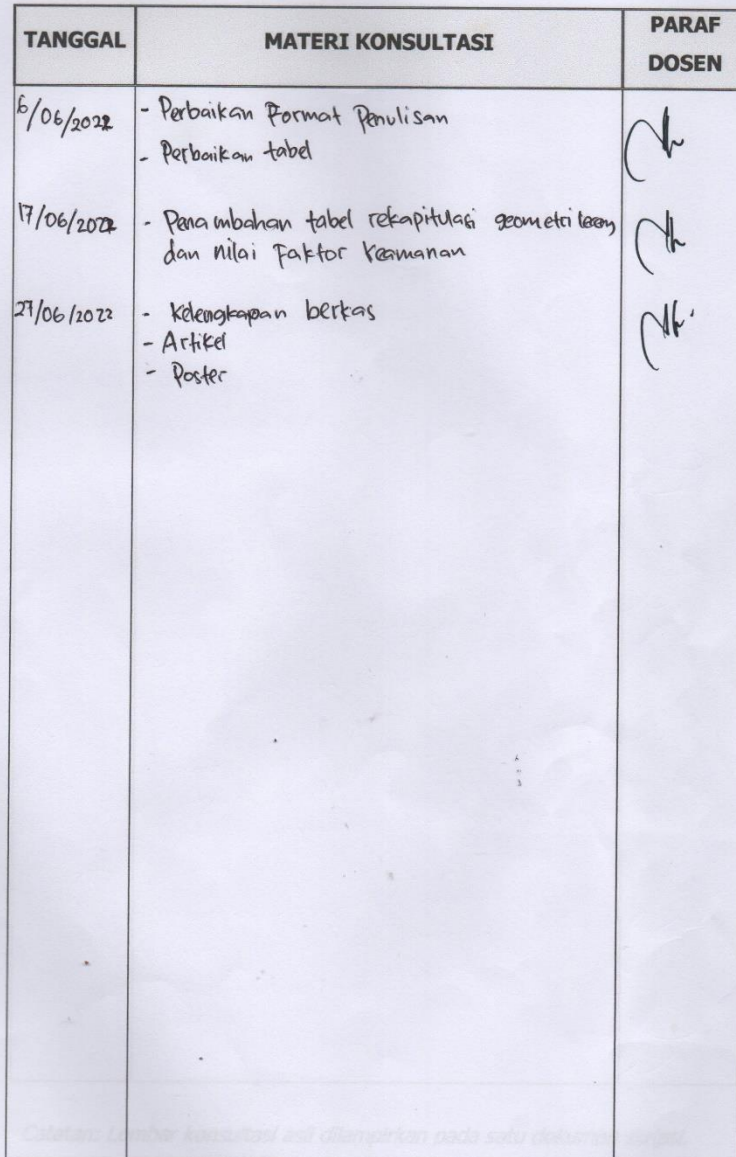 TANGGAL MATERI KONSULTASI PARAF DOSEN
6/06/2022 - Perbaikan Format Penulisan
- Perbaikan tabel
17/06/2022 - Penambahan tabel rekapitulasi geometri lereng
dan nilai Faktor Keamanan
27/06/2022 - Kelengkapan berkas
- Artikel
- Poster
Catatan: Lembar konsultasi asli dilampirkan pada satu